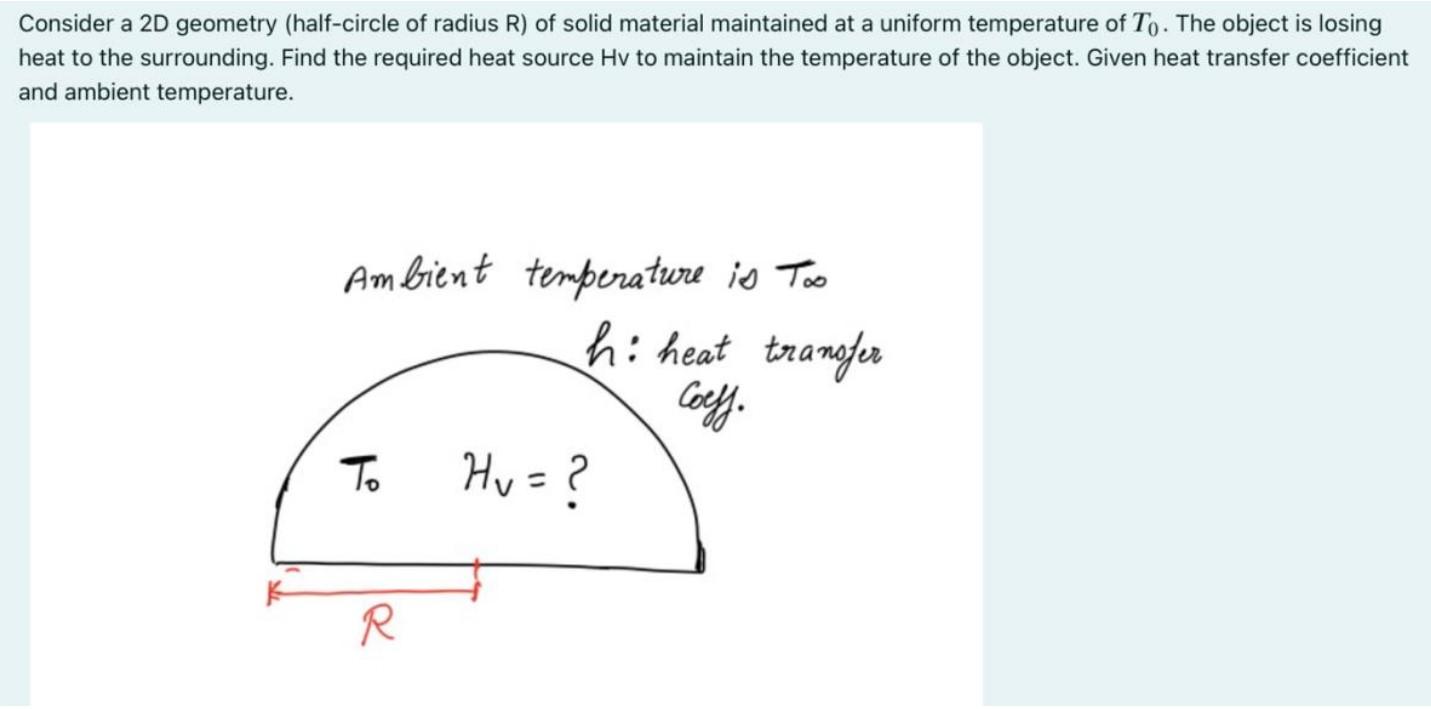 Consider a 2D geometry (half-circle of radius R) of solid material maintained at a uniform temperature of T₀. The object is losing
heat to the surrounding. Find the required heat source Hv to maintain the temperature of the object. Given heat transfer coefficient
and ambient temperature.
Ambient temperature is T∞
h: heat transfer
Coeff.
T₀ Hv = ?
R